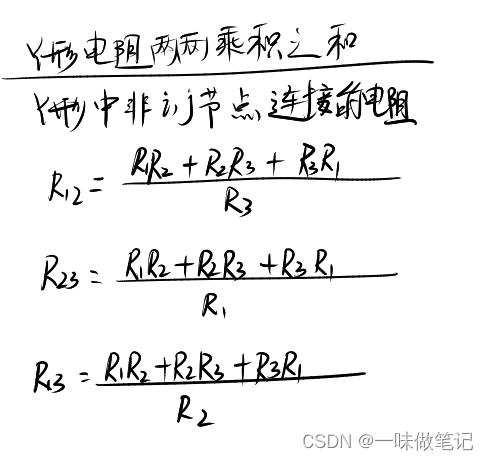 Y形电阻两两乘积之和
Y形中非i,j节点连接的电阻
R12 = (R1R2 + R2R3 + R3R1) / R3
R23 = (R1R2 + R2R3 + R3R1) / R1
R13 = (R1R2 + R2R3 + R3R1) / R2
CSDN @一味做笔记